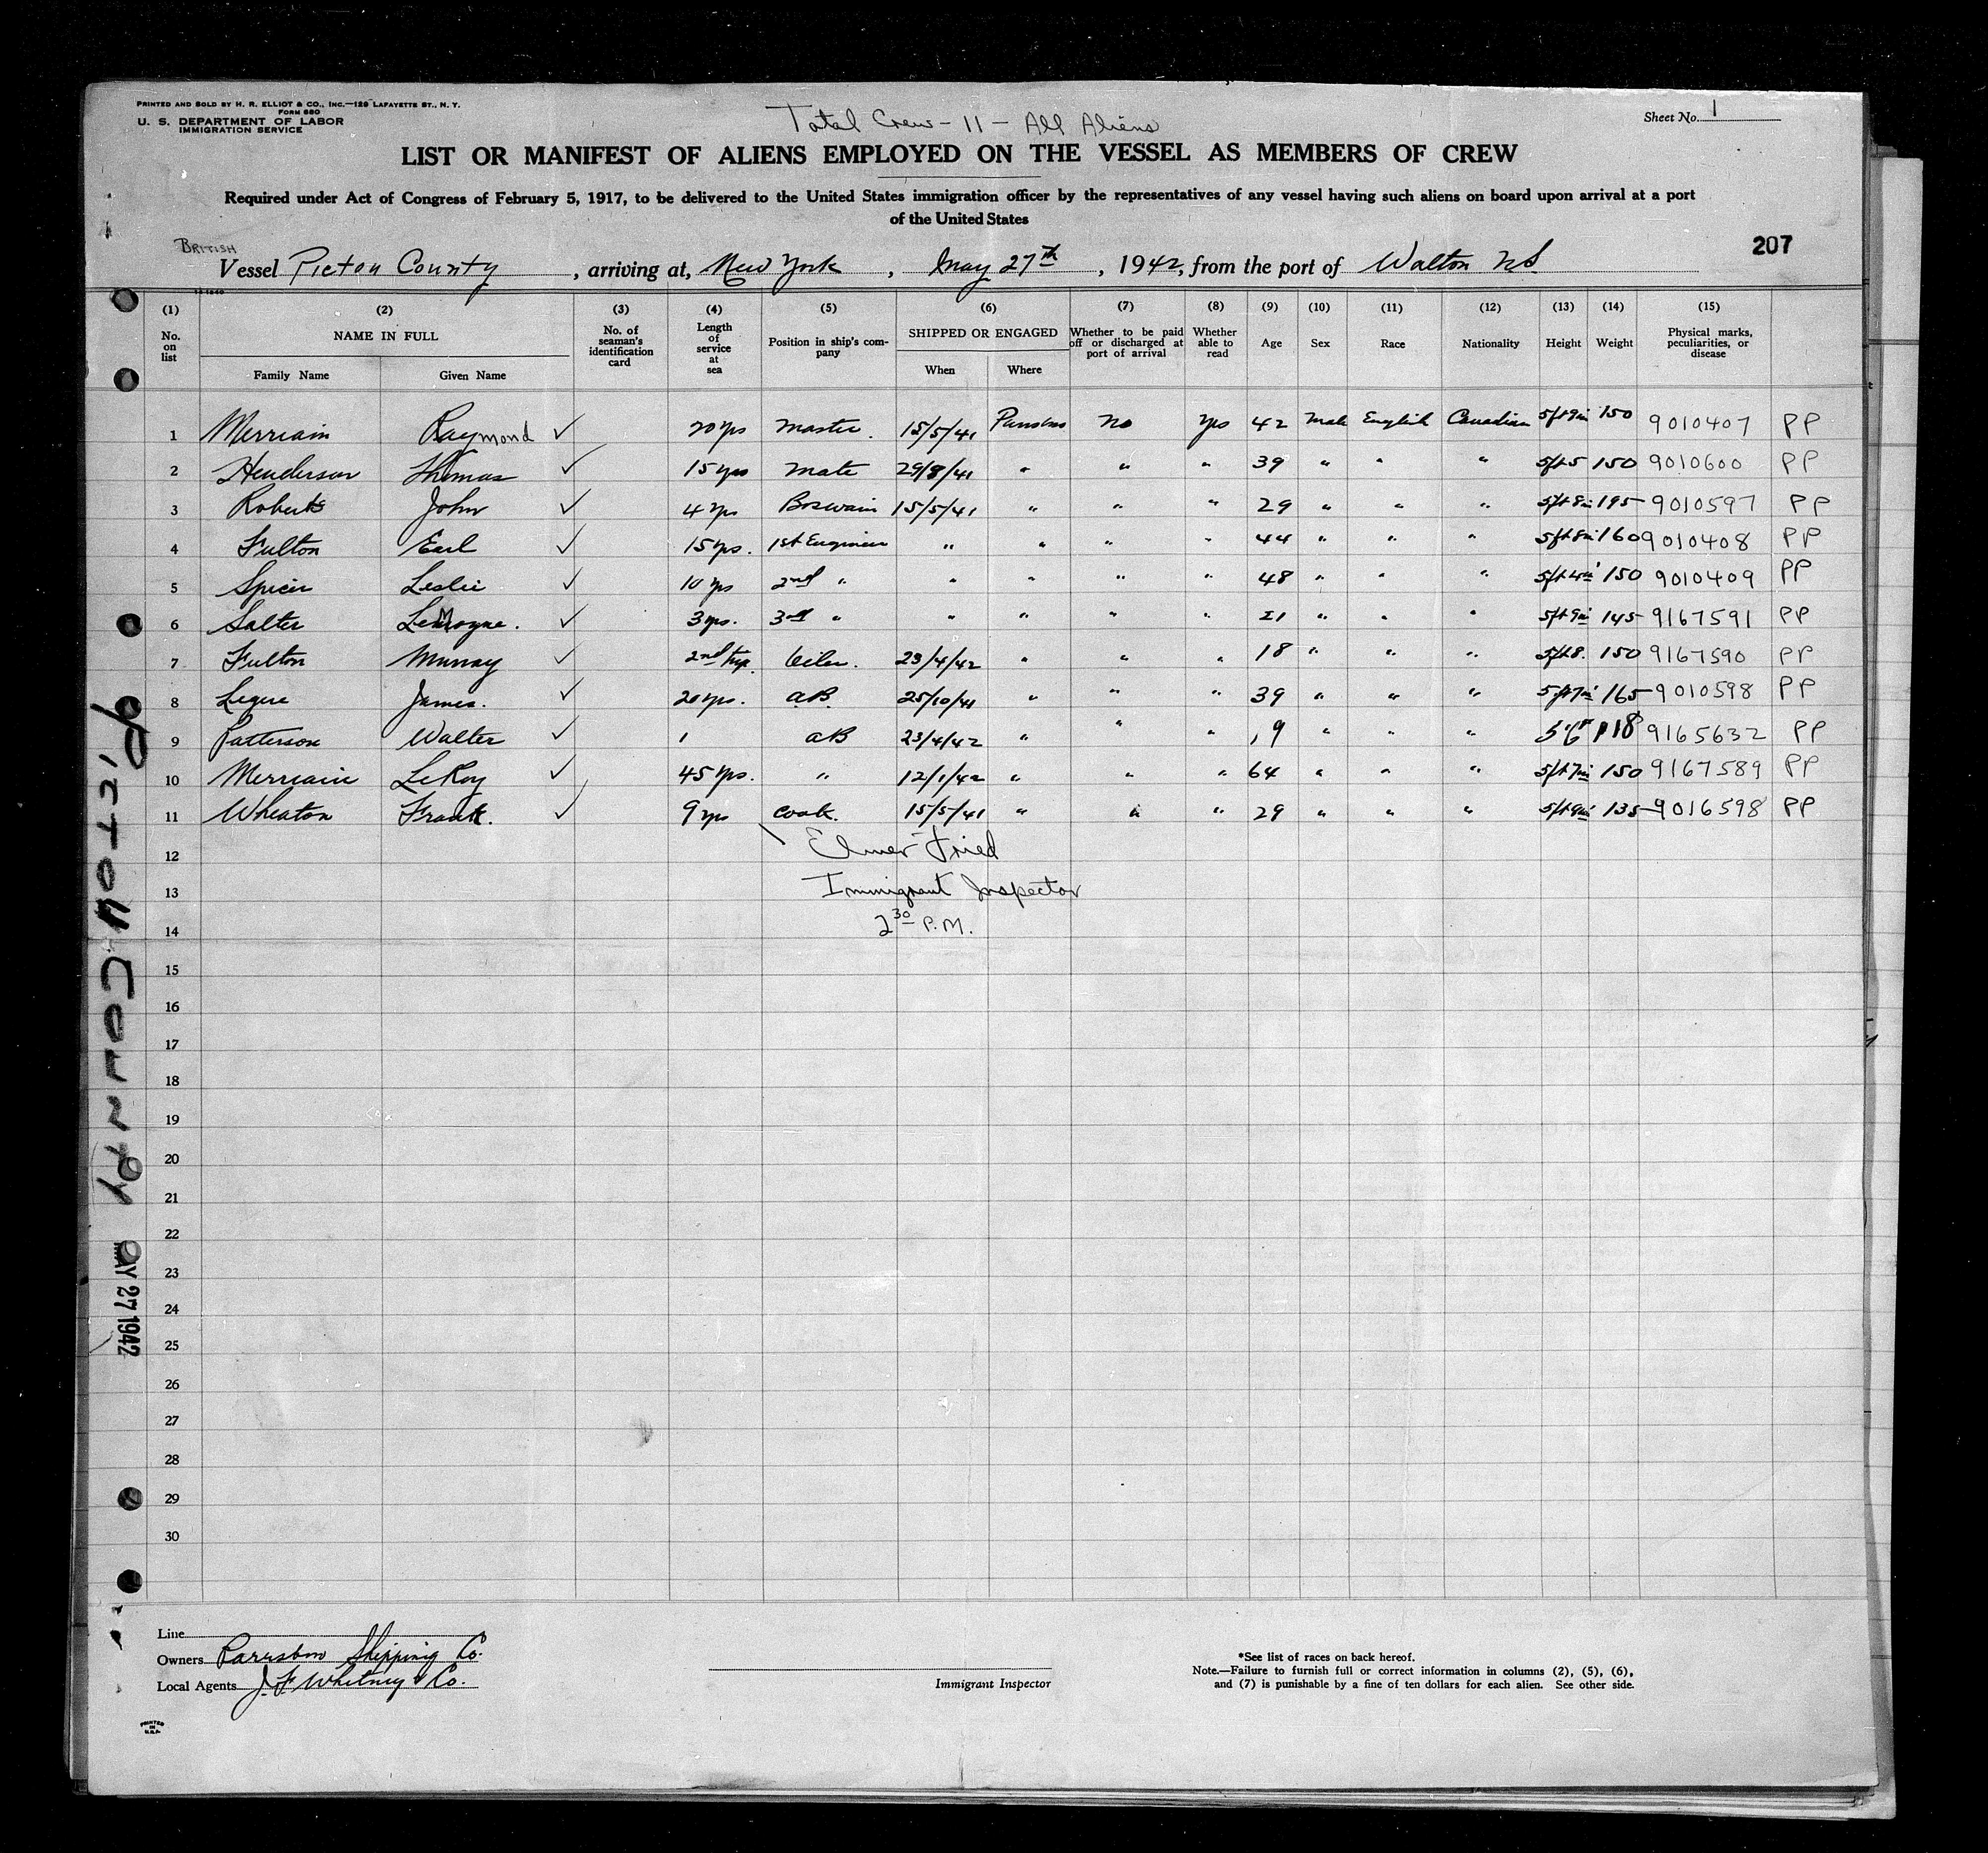 PRINTED AND SOLD BY H. R. ELLIOT & CO., INC.—129 LAFAYETTE ST., N. Y.
FORM 680
U. S. DEPARTMENT OF LABOR
IMMIGRATION SERVICE
Total Crew - 11 - All Aliens
Sheet No. 1
LIST OR MANIFEST OF ALIENS EMPLOYED ON THE VESSEL AS MEMBERS OF CREW
Required under Act of Congress of February 5, 1917, to be delivered to the United States immigration officer by the representatives of any vessel having such aliens on board upon arrival at a port
of the United States
BRITISH
207
Vessel Picton County, arriving at, New York, May 27th, 1942, from the port of Walton NS
(1) (2) (3) (4) (5) (6) (7) (8) (9) (10) (11) (12) (13) (14) (15)
No. on list NAME IN FULL Family Name Given Name No. of seaman's identification card Length of service at sea Position in ship's company SHIPPED OR ENGAGED When Where Whether to be paid off or discharged at port of arrival Whether able to read Age Sex Race Nationality Height Weight Physical marks, peculiarities, or disease
1 Merriam Raymond ✓ 20 yrs Master. 15/5/41 No yes 42 Male English Canadian 5ft 9in 150 9010407 PP
2 Henderson Thomas ✓ 15 yrs Mate 29/8/41 " " " 39 " " " 5ft 5 150 9010600 PP
3 Roberts John ✓ 4 yrs Boswain 15/5/41 " " " 29 " " " 5ft 8in 195 9010597 PP
4 Fulton Earl ✓ 15 yrs. 1st Engineer " " " " 44 " " " 5ft 8in 160 9010408 PP
5 Spicer Leslie ✓ 10 yrs 2nd " " " " " 48 " " " 5ft 4in 150 9010409 PP
6 Salter LeMoyne. ✓ 3 yrs. 3rd " " " " " 21 " " " 5ft 9in 145 9167591 PP
7 Fulton Murray ✓ 2nd trip Oiler. 23/4/42 " " " 18 " " " 5ft 8. 150 9167590 PP
8 Legere James. ✓ 20 yrs. AB. 25/10/41 " " " 39 " " " 5ft 7in 165 9010598 PP
9 Patterson Walter ✓ 1 AB 23/4/42 " " " 19 " " " 5'6" 118 9165632 PP
10 Merriam LeRoy ✓ 45 yrs. " 12/1/42 " " " 64 " " " 5ft 7in 150 9167589 PP
11 Wheaton Frank. ✓ 9 yrs Cook. 15/5/41 " " " 29 " " " 5ft 9in 135 9016598 PP
12 Elmer Fried
13 Immigrant Inspector
14 2 30 P.M.
15
16
17
18
19
20
21
22
23
24
25
26
27
28
29
30
PICTON COUNTY
MAY 27 1942
Line
Owners Parrsboro Shipping Co.
Local Agents J. F. Whitney & Co.
Immigrant Inspector
*See list of races on back hereof.
Note.—Failure to furnish full or correct information in columns (2), (5), (6),
and (7) is punishable by a fine of ten dollars for each alien. See other side.
PRINTED
IN
U.S.A.